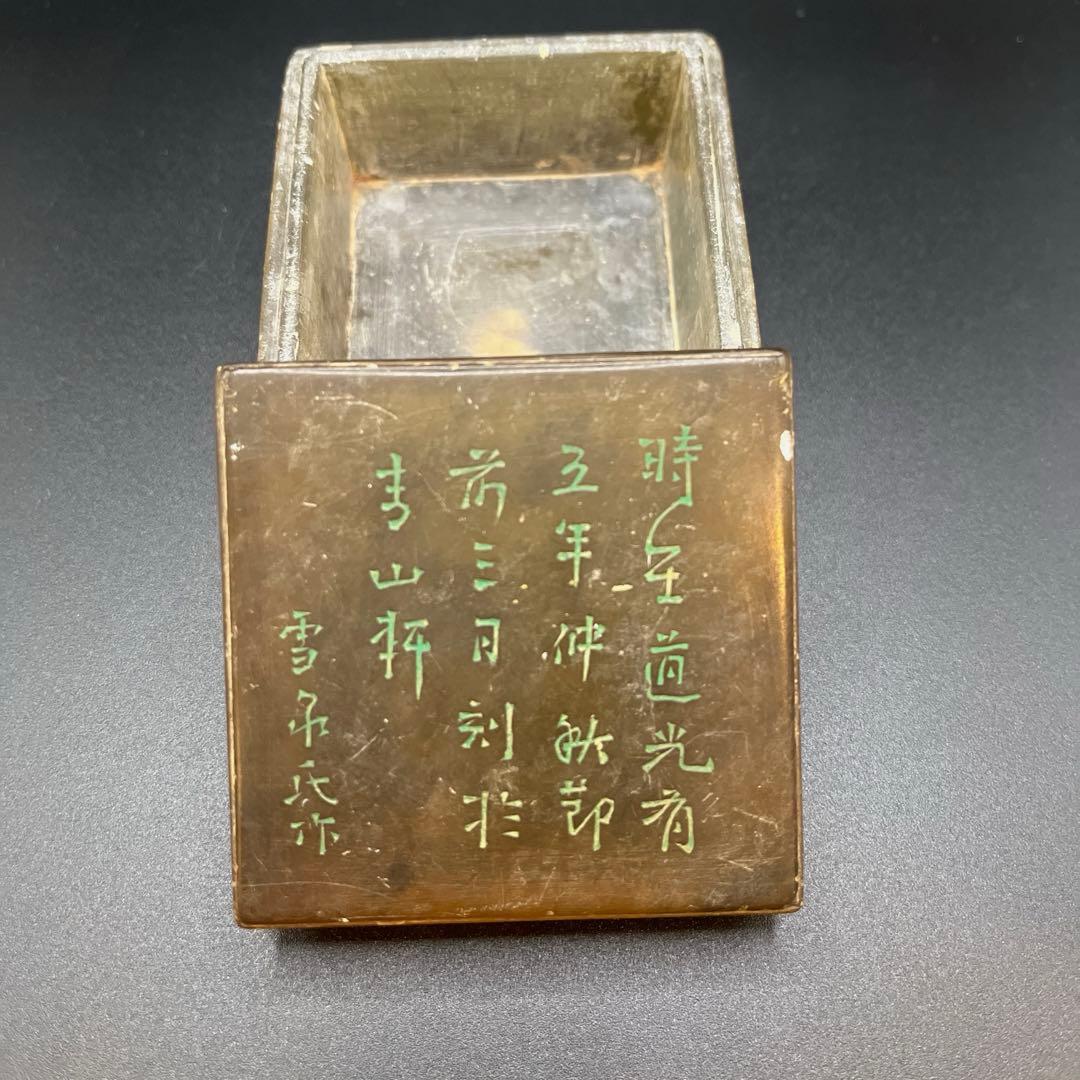 時在道光有
五年仲秋節
前三日刻於
青山軒
雪泉氏作